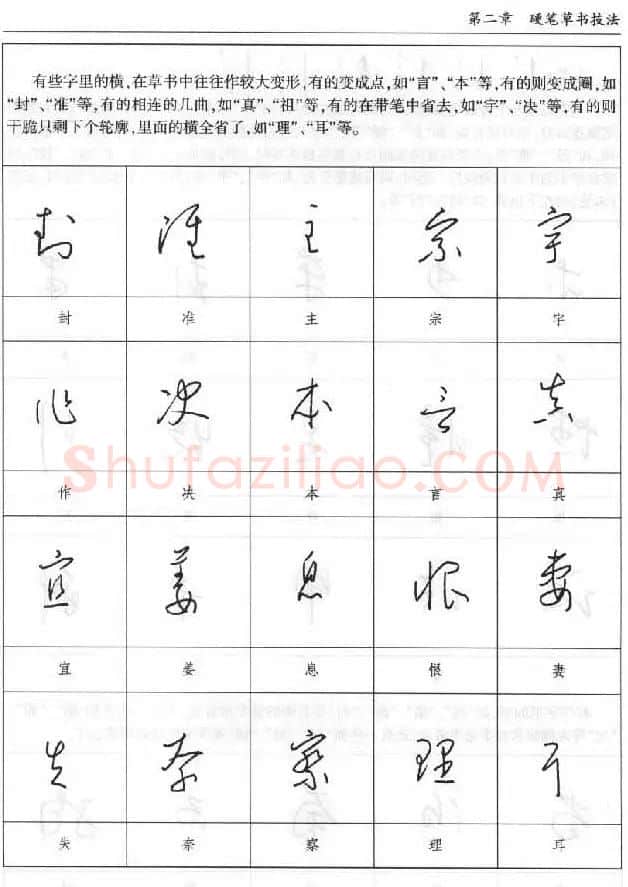 第二章 硬笔草书技法
有些字里的横,在草书中往往作较大变形,有的变成点,如“言”、“本”等,有的则变成圈,如
“封”、“准”等,有的相连的几曲,如“真”、“祖”等,有的在带笔中省去,如“字”、“决”等,有的则
干脆只剩下个轮廓,里面的横全省了,如“理”、“耳”等。
封 准 主 宗 字
作 决 本 言 真
Shufaziliao.com
宜 姜 息 恨 妻
失 奈 察 理 耳